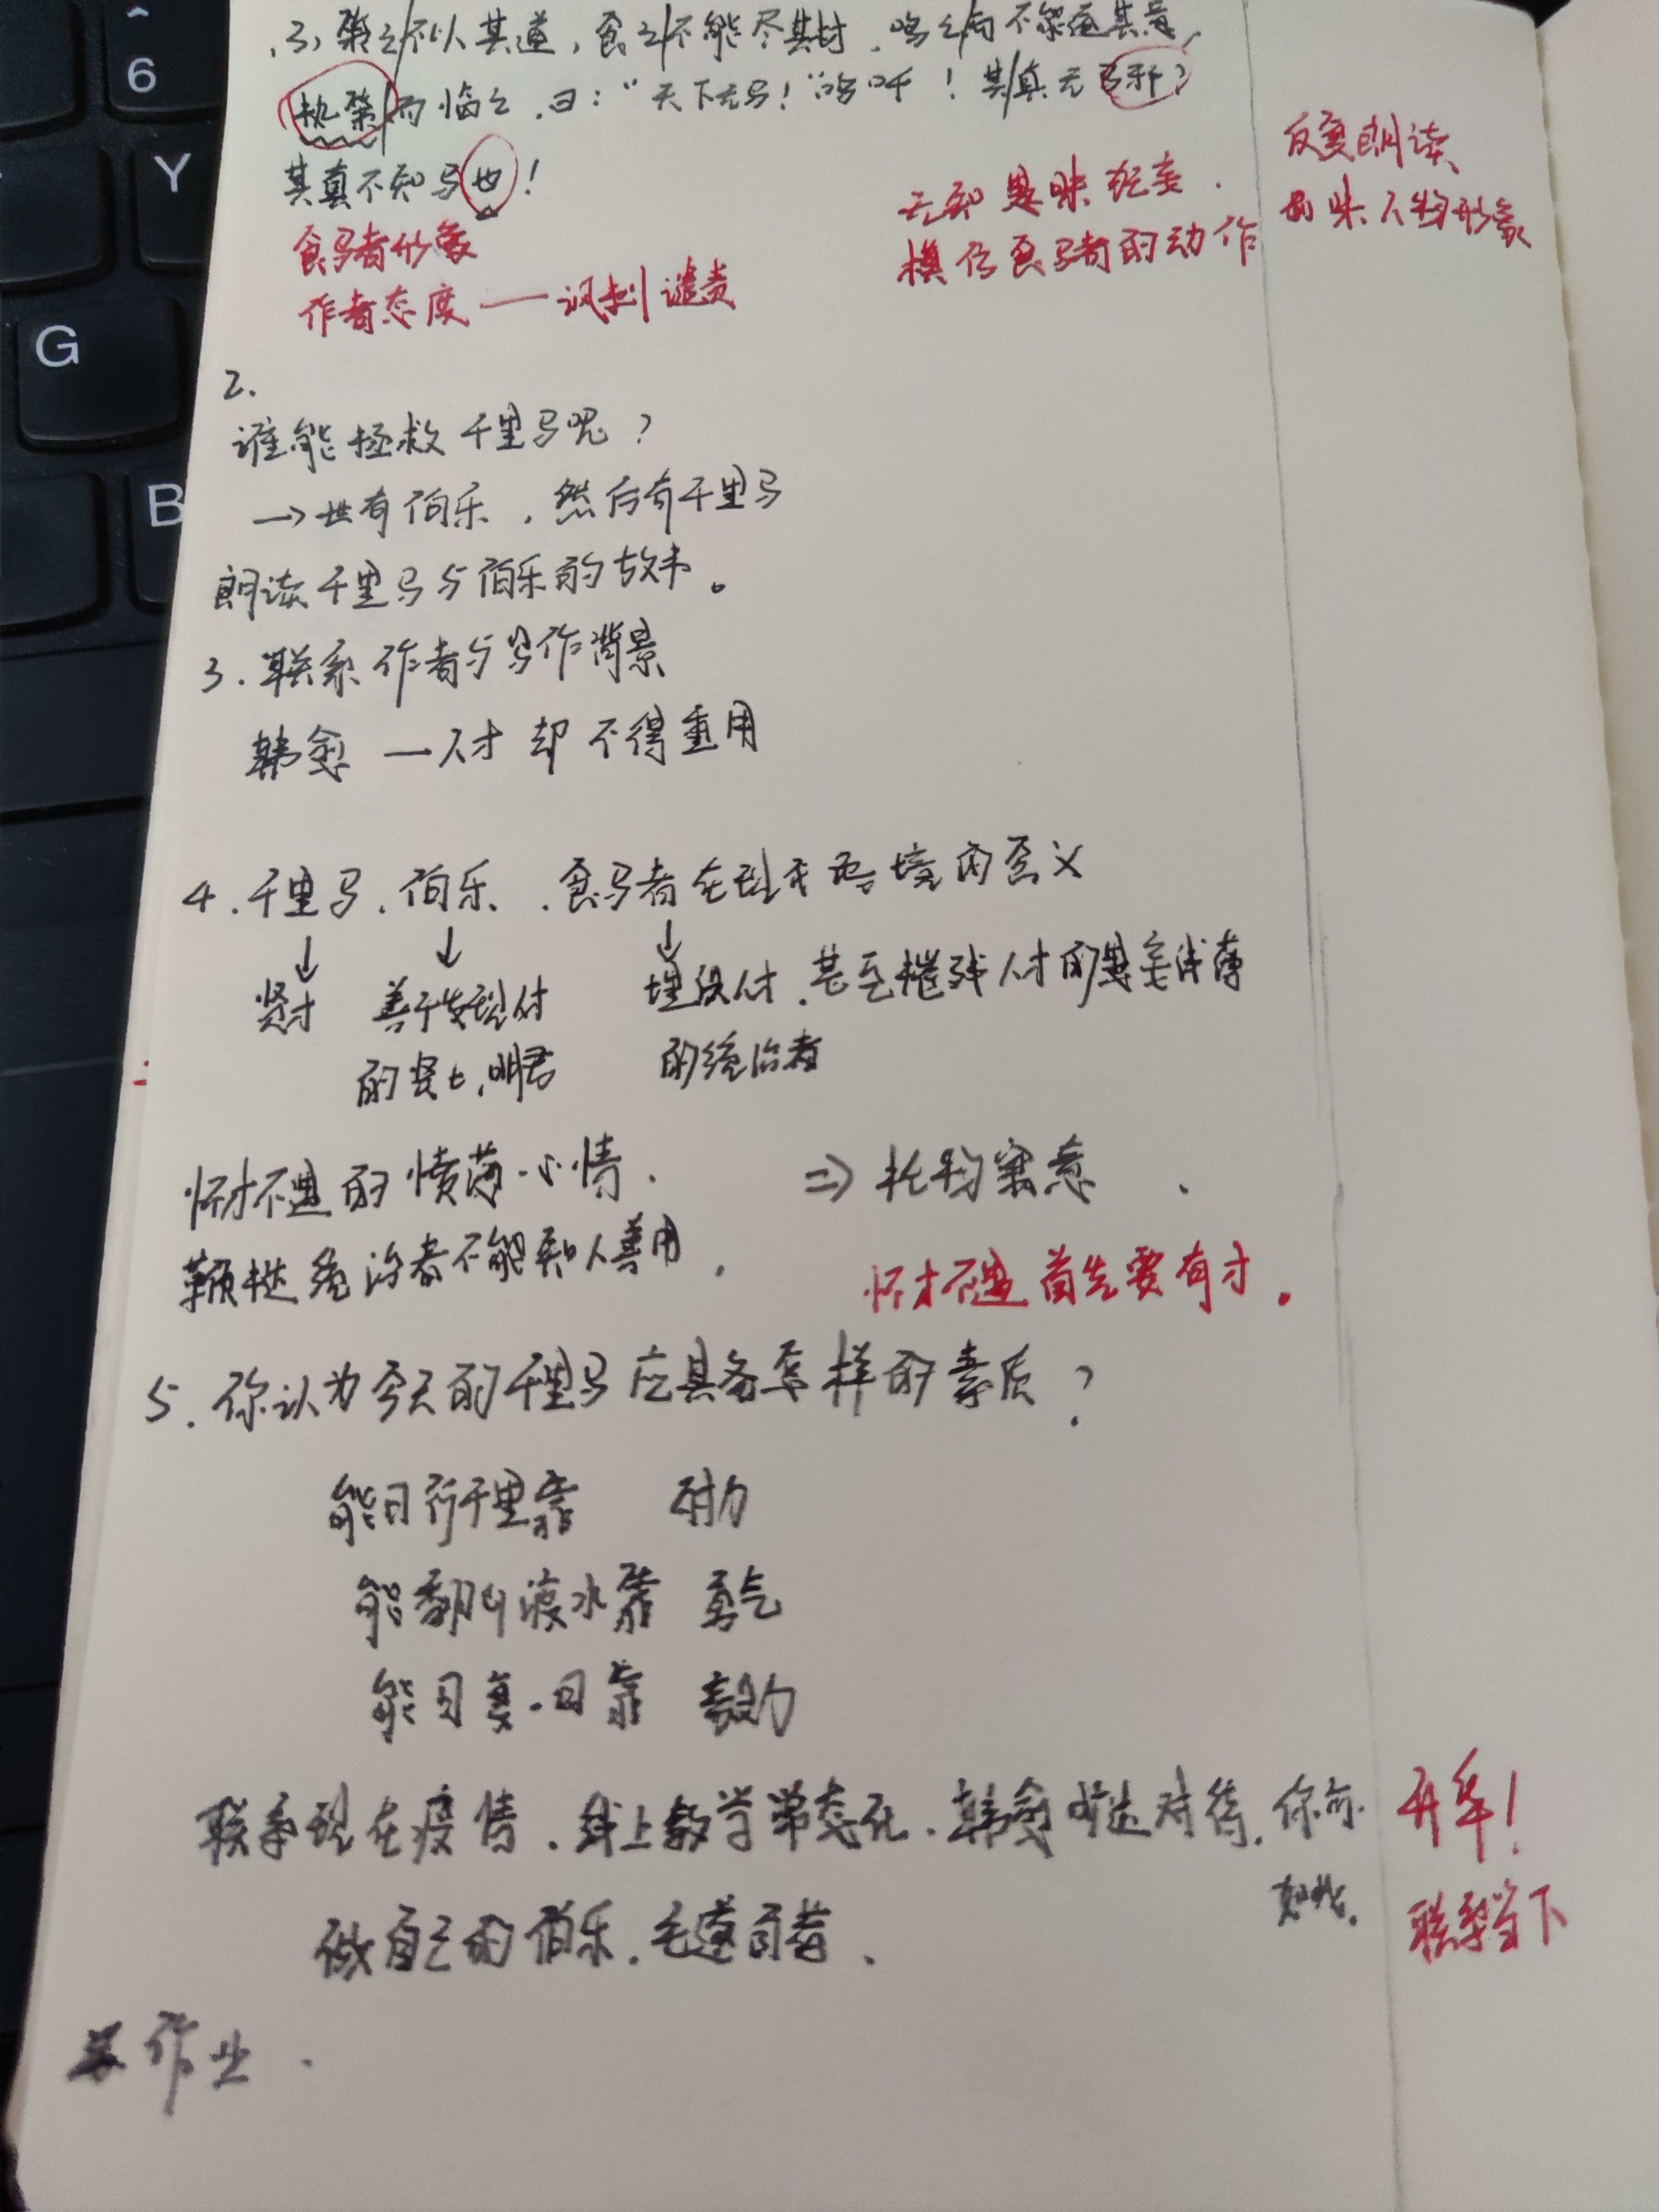 ^
6
Y
G
B
(3)策之/不以其道,食之/不能尽其材,鸣之/而不能通其意,
执策/而临之,曰:“天下无马!”呜呼!其/真无马邪?
其真不知马也!
食马者形象
作者态度——讽刺 谴责
无知 愚昧 狂妄.
模仿食马者的动作
反复朗读、
品味人物形象
2.
谁能拯救千里马呢?
→世有伯乐,然后有千里马
朗读千里马与伯乐的故事。
3.联系作者与写作背景
韩愈 —人才却不得重用
4.千里马、伯乐、食马者在现实语境的含义
↓ ↓ ↓
贤才 善于发现人才 埋没人才、甚至摧残人才的愚妄浅薄
的贤士、明君 的统治者
怀才不遇的愤薄心情. ⇒托物寓意.
鞭挞统治者不能知人善用.
怀才不遇首先要有才。
5.你认为今天的千里马应具备怎样的素质?
能日行千里靠 耐力
能翻山渡水靠 勇气
能日复一日靠 毅力
联系现在疫情、线上教学常态化、韩愈 对待,你亦 升华!
如此. 联系当下
做自己的伯乐.毛遂自荐.
作业.